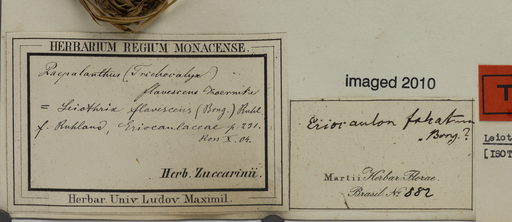 HERBARIUM REGIUM MONACENSE.
Paepalanthus (Trichocalyx)
flavescens Koernicke
= Leiothrix flavescens (Bong.) Ruhl.
f. Ruhland, Eriocaulaceae p. 231.
X. 04.
Herb. Zuccarinii.
Herbar. Univ. Ludov. Maximil.
imaged 2010
Eriocaulon
Bong.?
Martii Herbar. Florae
Brasil. No. 882
T
Leiot
[ISOT